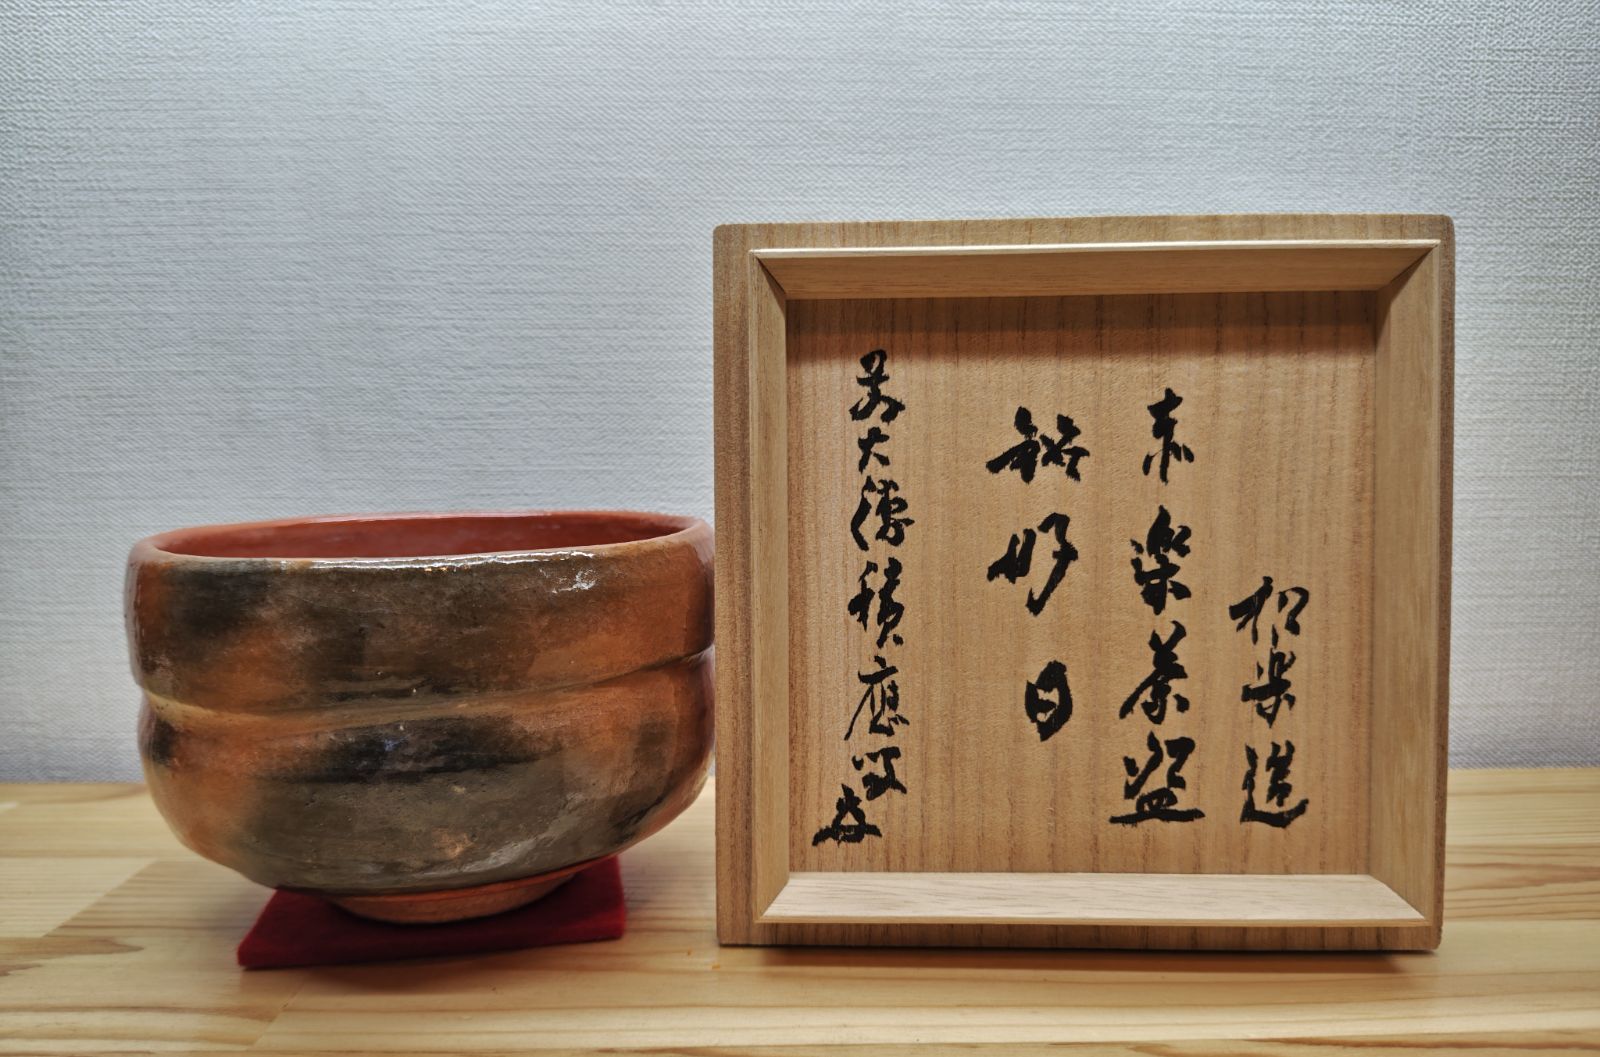 松楽造
赤楽茶盌
銘好日
前大徳積應